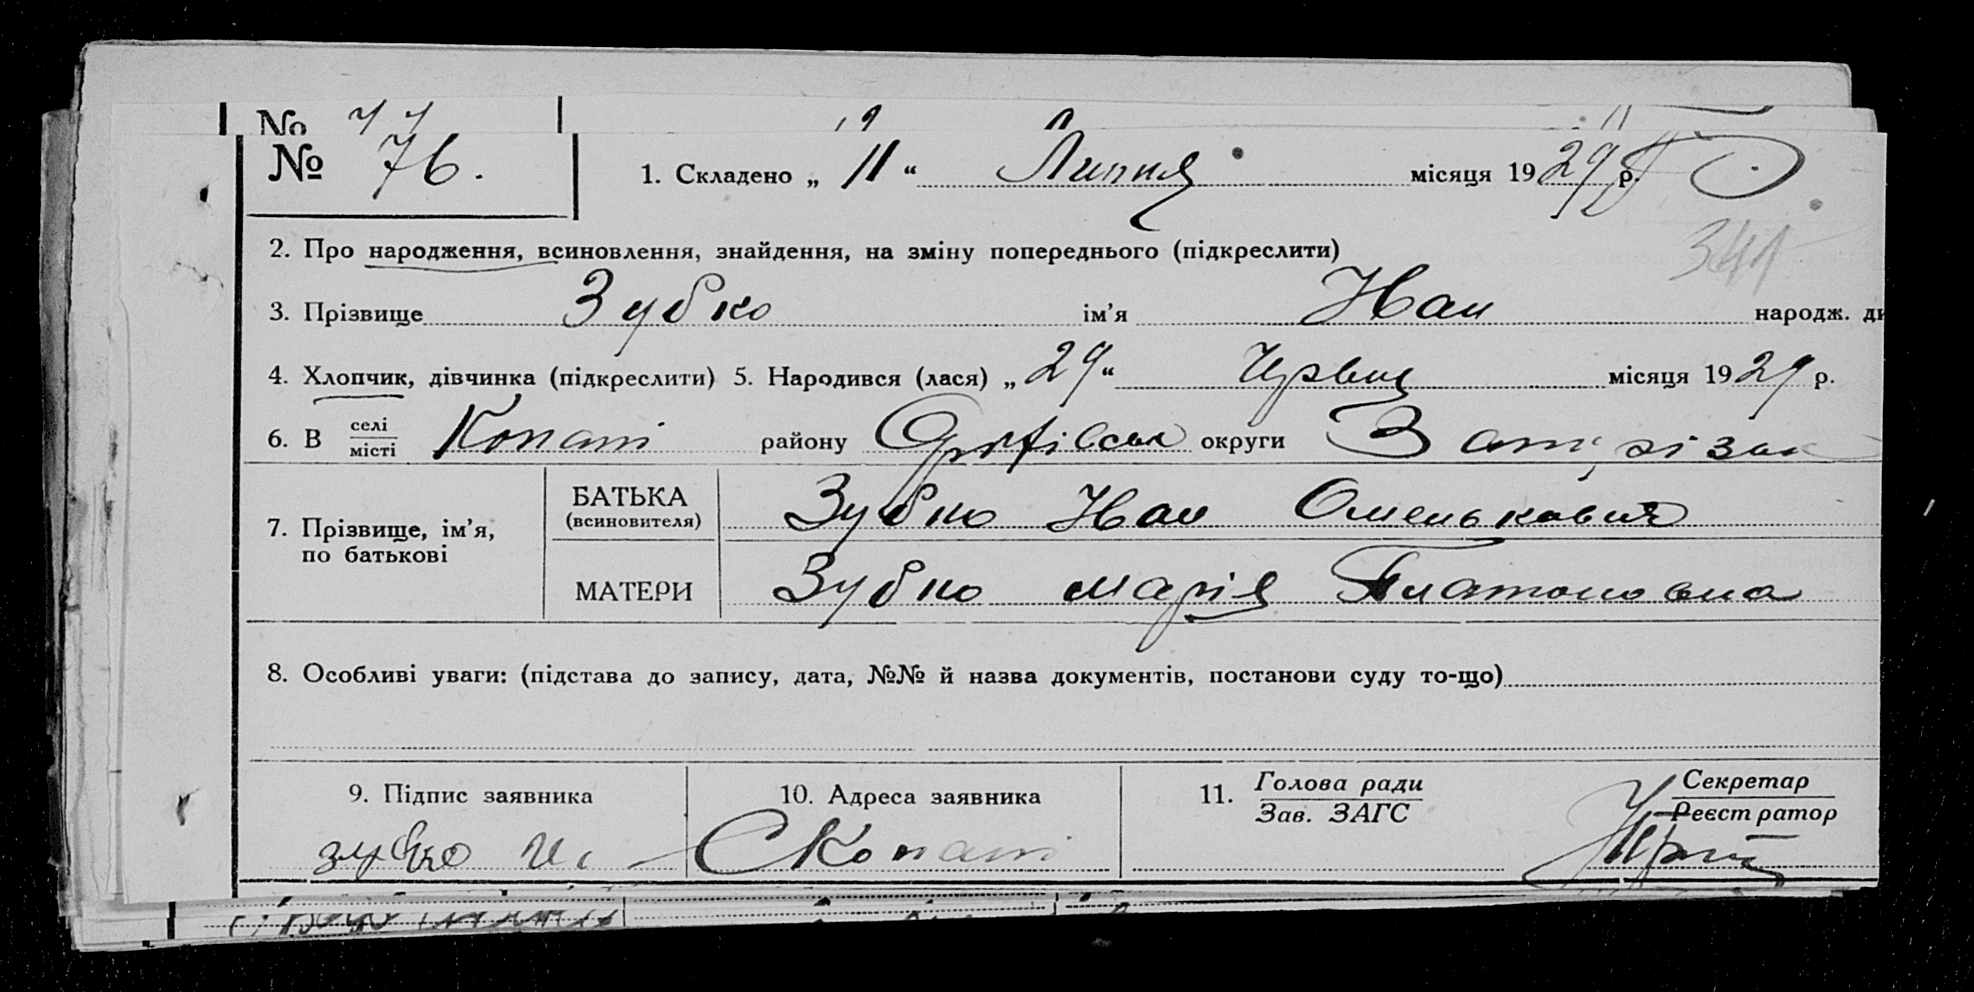 №
№ 76.
1. Складено „ 11 “ Липня місяця 1929 р.
2. Про народження, всиновлення, знайдення, на зміну попереднього (підкреслити)
341
3. Прізвище Зубко ім’я Иван народж. ди
4. Хлопчик, дівчинка (підкреслити) 5. Народився (лася) „ 29 “ Червня місяця 1929 р.
6. В селі місті Копані району Оріхівськ округи Запорізьк
7. Прізвище, ім’я, по батькові
БАТЬКА (всиновителя) Зубко Иван Омелькович
МАТЕРИ Зубко Марія Платоновна
8. Особливі уваги: (підстава до запису, дата, №№ й назва документів, постанови суду то-що)
9. Підпис заявника 10. Адреса заявника 11. Голова ради Зав. ЗАГС Секретар Реєстратор
Зубко И. С Копани